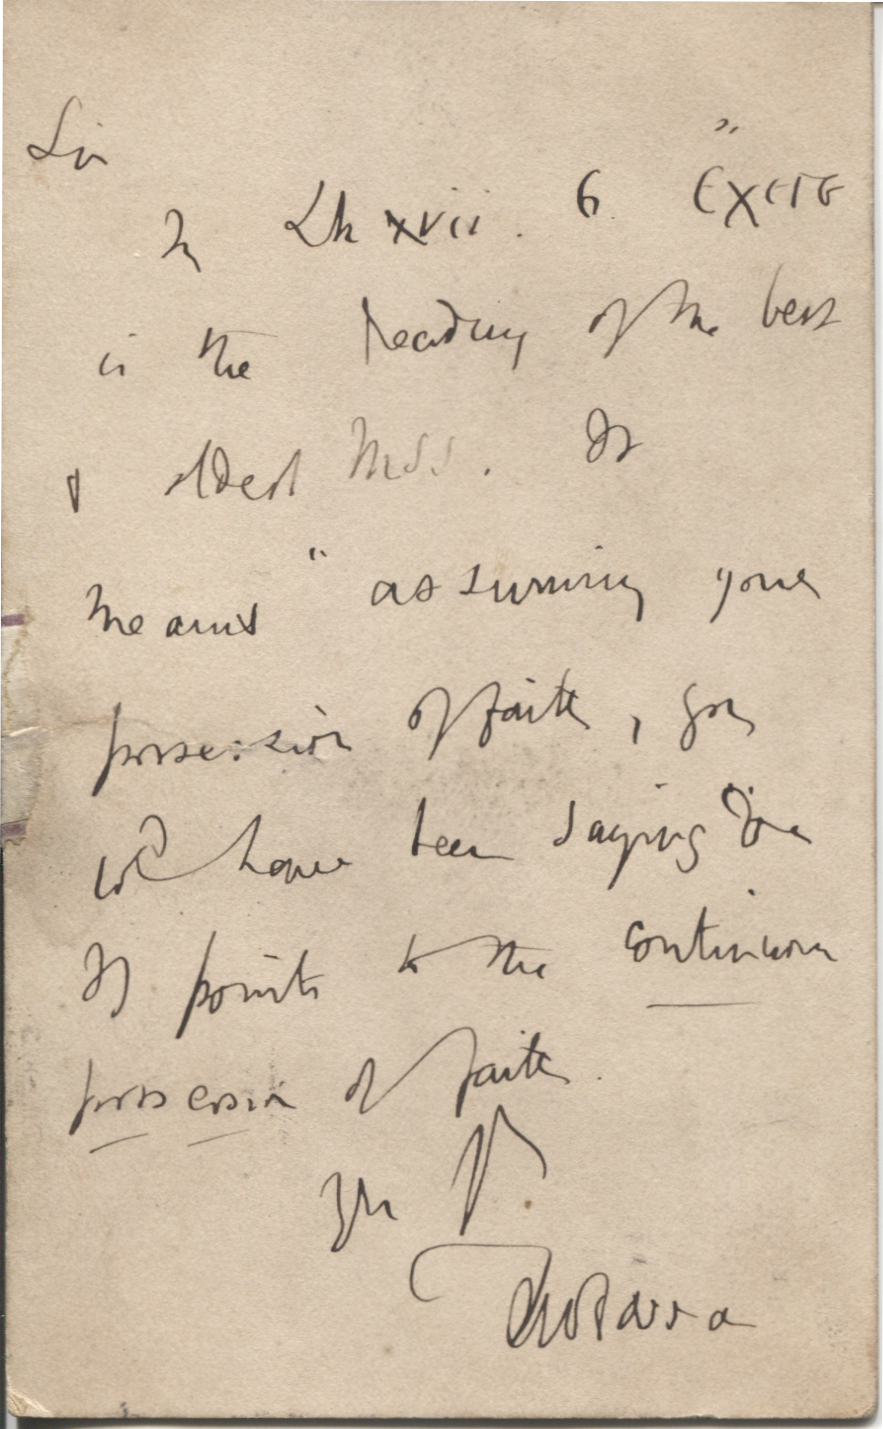 Sir
In Lk xvii. 6 "ἔχετε
is the reading of the best
& oldest MSS. It
means "assuming your
possession of faith, you
wd have been saying &c
It points to the continuous
possession of faith.
Yrs